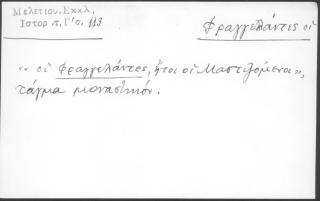 Μελετίου, Εκκλ.
Ιστορ τ, Γ'σ, 113
Φραγγελάντες οἱ
«οἱ Φραγγελάντες, ἤτοι οἱ Μαστιζόμενοι»,
τάγμα μοναστικόν.